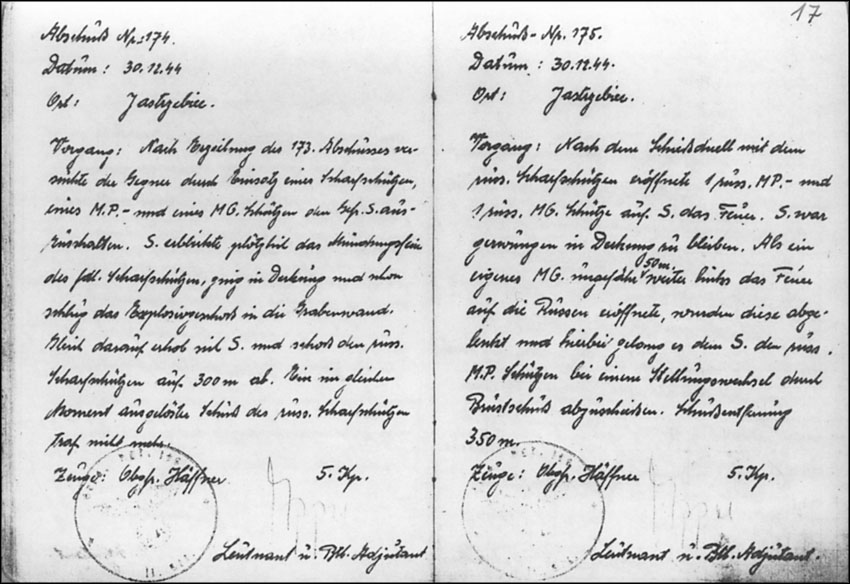 17
Abschuß Nr.: 174.
Datum: 30.12.44
Ort: Jastrgebiec.
Vorgang: Nach Erzielung des 173. Abschusses ver-
suchte der Gegner durch Einsatz eines Scharfschützen,
eines M.P.- und eines MG. Schützen den Gefr. S. aus-
zuschalten. S. erblickte plötzlich das Mündungsfeuer
des fdl. Scharfschützen, ging in Deckung und schon
schlug das Explosivgeschoß in die Grabenwand.
Gleich darauf erhob sich S. und schoß den russ.
Scharfschützen auf 300 m ab. Ein im gleichen
Moment ausgelöster Schuß des russ. Scharfschützen
traf nicht mehr.
Zeuge: Obgfr. Häffner 5. Kp.
Leutnant u. Btl. Adjutant
Abschuß-Nr. 175.
Datum: 30.12.44.
Ort: Jastrgebiec.
Vorgang: Nach dem Schießduell mit dem
russ. Scharfschützen eröffnete 1 russ. MP.- und
1 russ. MG. Schütze auf S. das Feuer. S. war
gezwungen in Deckung zu bleiben. Als ein
eigenes MG. ungefähr 50 m weiter links das Feuer
auf die Russen eröffnete, wurden diese abge-
lenkt und hierbei gelang es dem S. den russ.
M.P. Schützen bei einem Stellungswechsel durch
Brustschuß abzuschießen. Schußentfernung
350 m.
Zeuge: Obgfr. Häffner 5. Kp.
Leutnant u. Btl. Adjutant